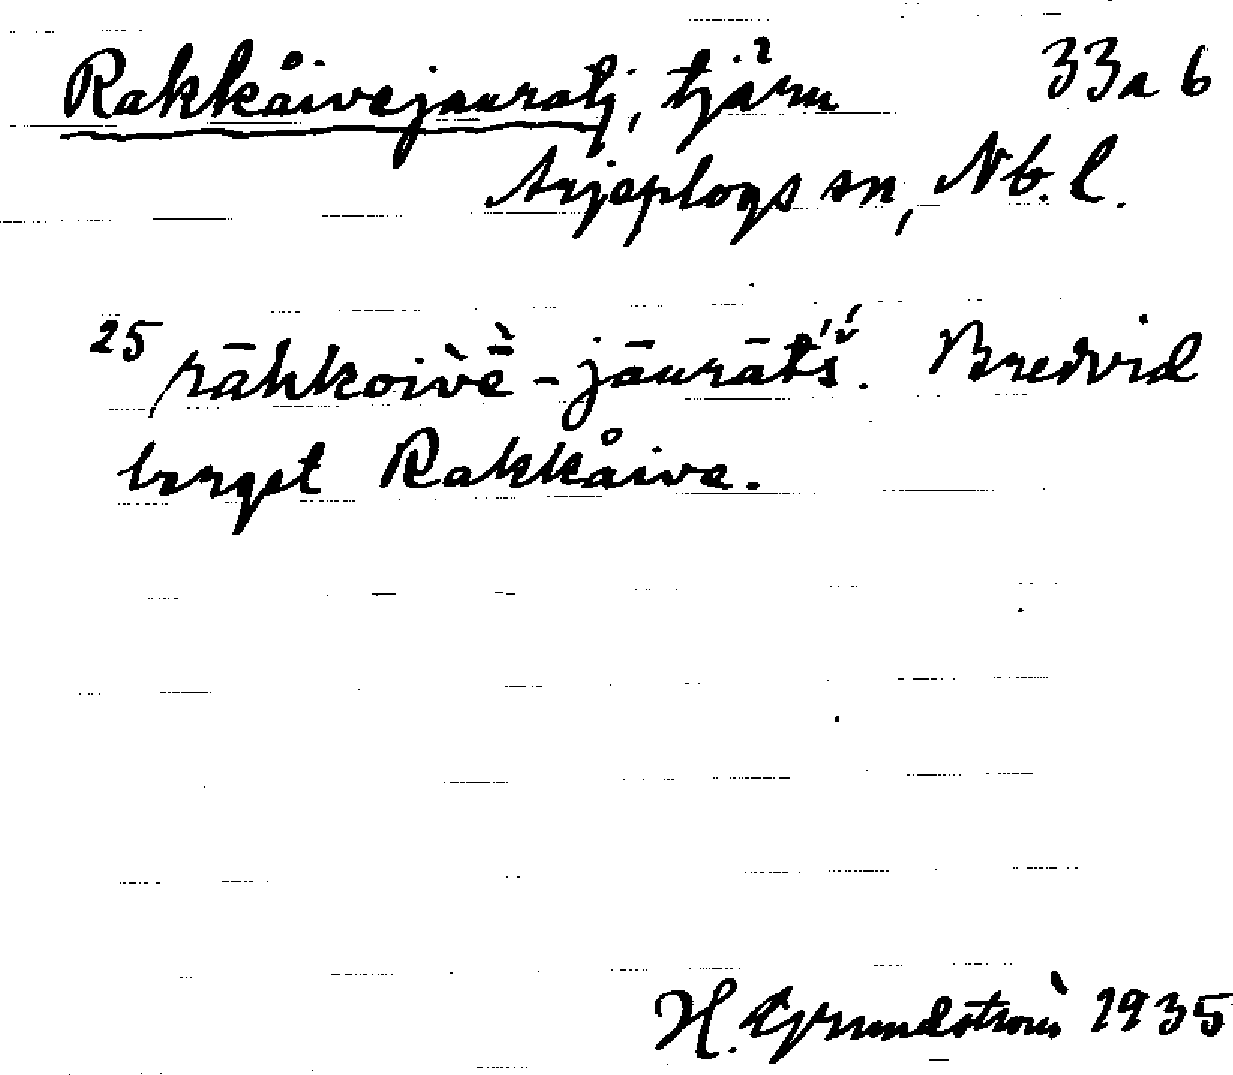 Rakkåivejauratj, tjärn 33a 6
Arjeplogs sn, Nb. l.
25 rāhkoivḕ - jāurāt́ś. Bredvid
berget Rakkåive.
H. Grundström 1935